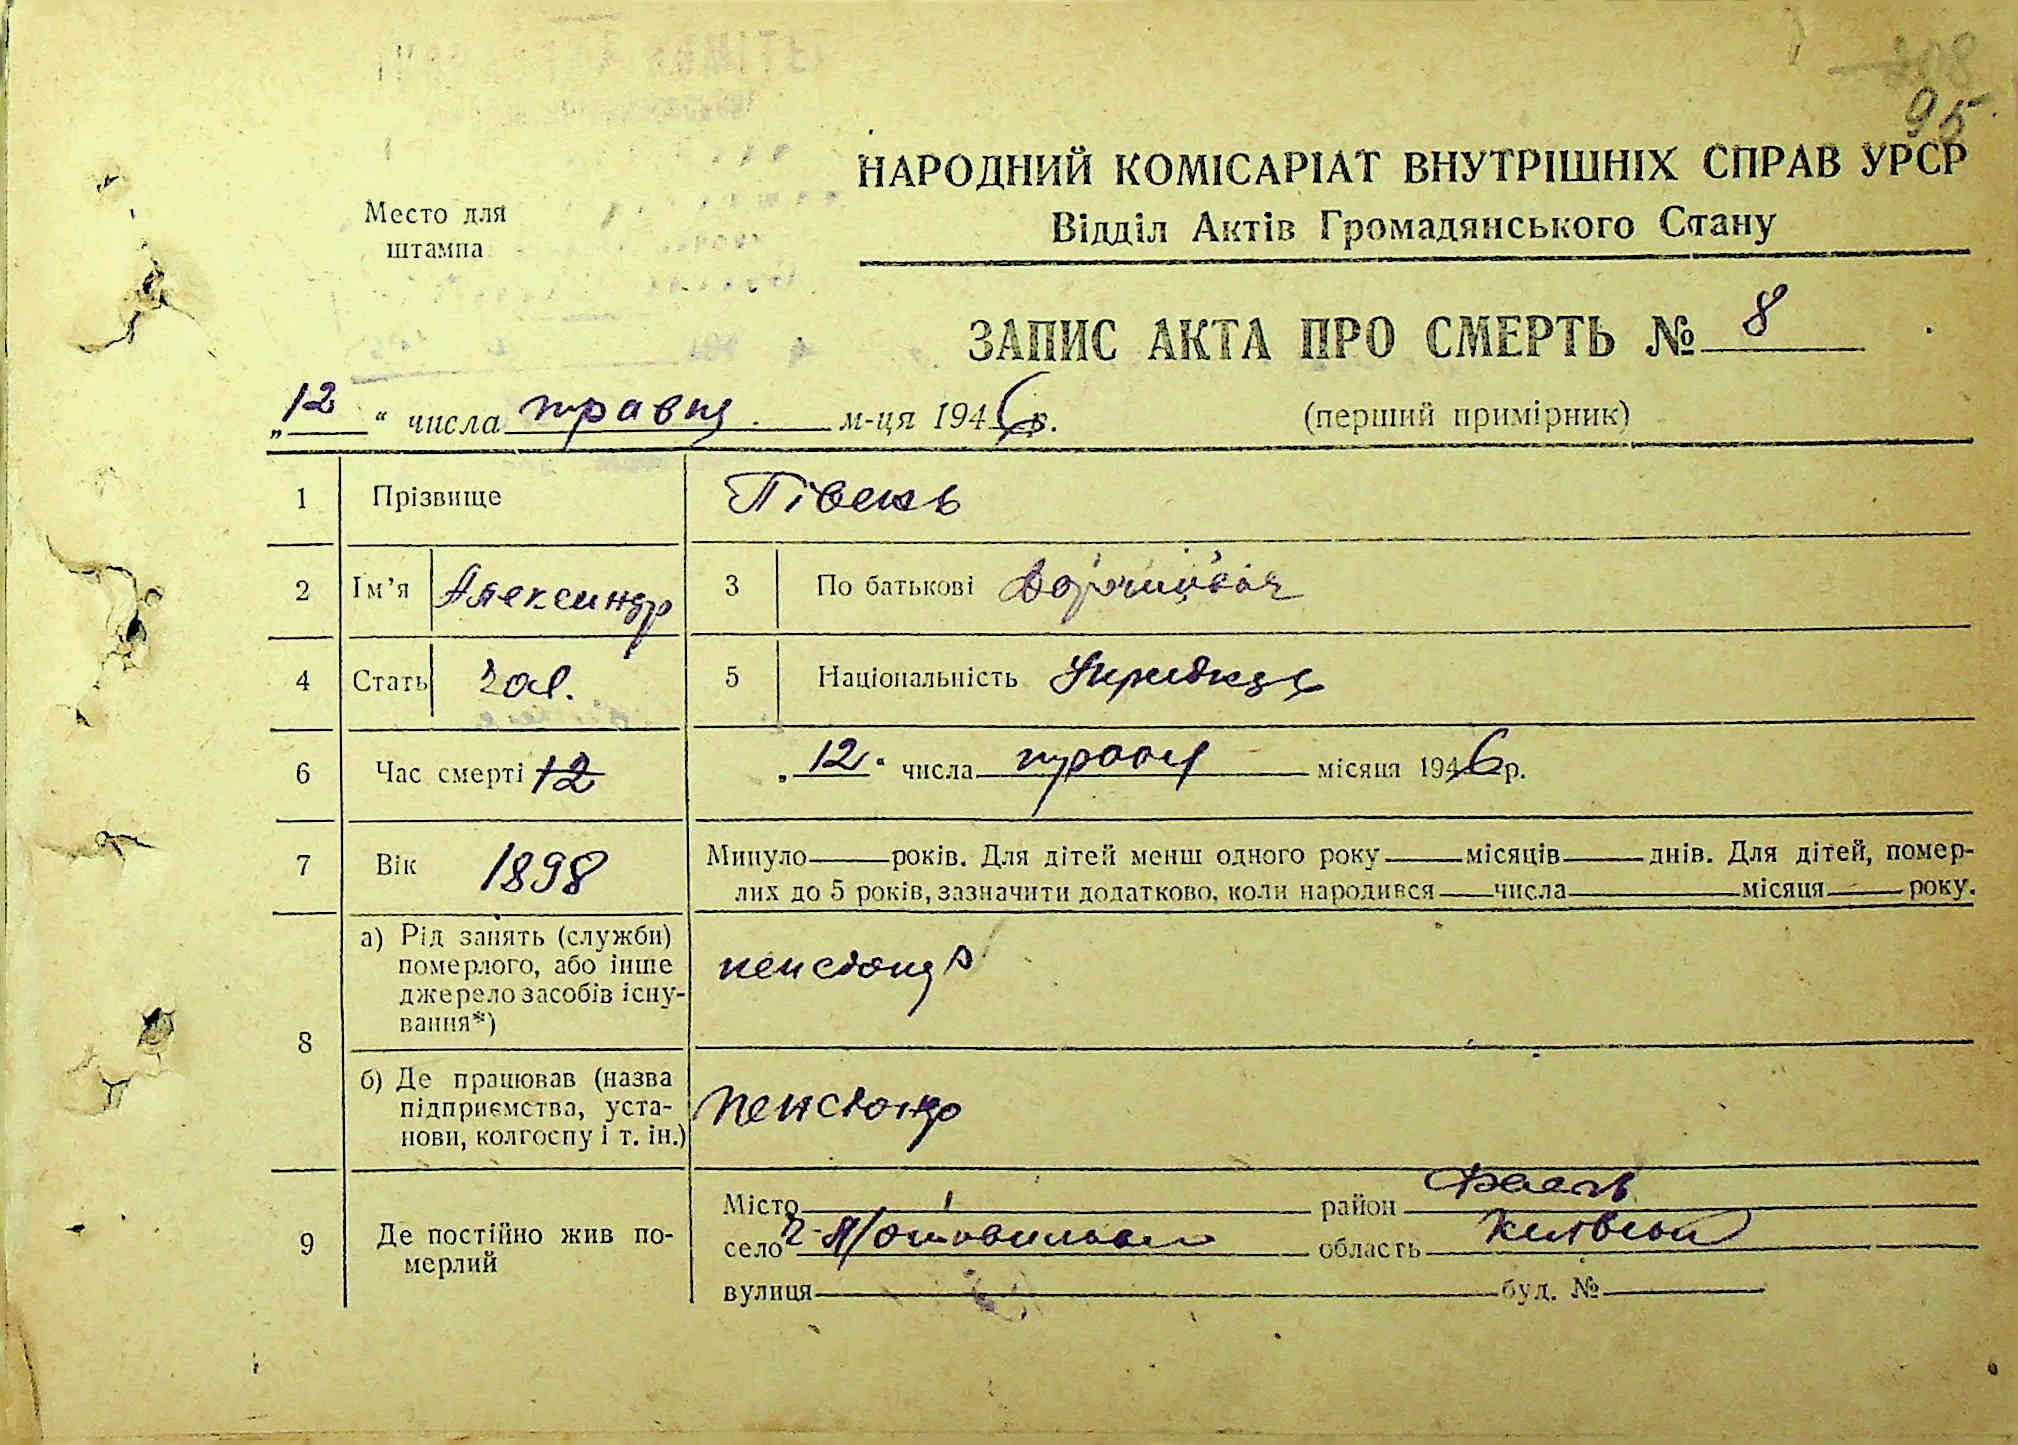 208
95
НАРОДНИЙ КОМІСАРІАТ ВНУТРІШНІХ СПРАВ УРСР
Відділ Актів Громадянського Стану
Место для
штампа
ЗАПИС АКТА ПРО СМЕРТЬ № 8
„12“ числа травня м-ця 1946 р.
(перший примірник)
1 Прізвище Півень
2 Ім’я Александр 3 По батькові
4 Стать чол. 5 Національність Украінець
6 Час смерті 12 „12“ числа травня місяця 1946 р.
7 Вік 1898 Минуло року років. Для дітей менш одного року місяців днів. Для дітей, помер-
лих до 5 років, зазначити додатково, коли народився числа місяця року.
8 а) Рід занять (служби)
померлого, або інше
джерело засобів існу-
вання*)
пенсіонер
б) Де працював (назва
підприємства, уста-
нови, колгоспу і т. ін.)
пенсіонер
9 Де постійно жив по-
мерлий
Місто район Фастів
село область Київськой
вулиця буд. №